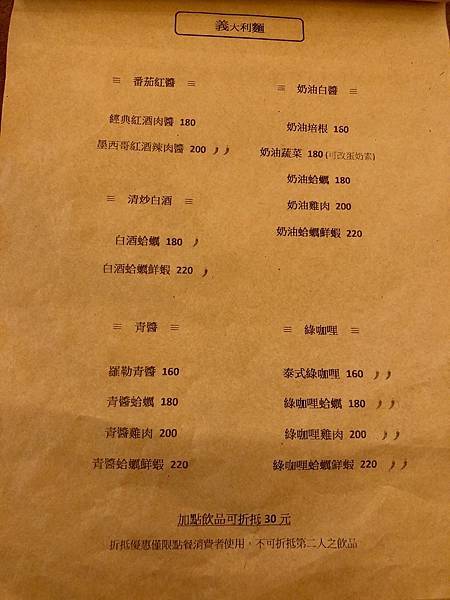 義大利麵
≡ 番茄紅醬 ≡
經典紅酒肉醬 180
墨西哥紅酒辣肉醬 200
≡ 清炒白酒 ≡
白酒蛤蠣 180
白酒蛤蠣鮮蝦 220
≡ 奶油白醬 ≡
奶油培根 160
奶油蔬菜 180 (可改蛋奶素)
奶油蛤蠣 180
奶油雞肉 200
奶油蛤蠣鮮蝦 220
≡ 青醬 ≡
羅勒青醬 160
青醬蛤蠣 180
青醬雞肉 200
青醬蛤蠣鮮蝦 220
≡ 綠咖哩 ≡
泰式綠咖哩 160
綠咖哩蛤蠣 180
綠咖哩雞肉 200
綠咖哩蛤蠣鮮蝦 220
加點飲品可折抵 30 元
折抵優惠僅限點餐消費者使用，不可折抵第二人之飲品